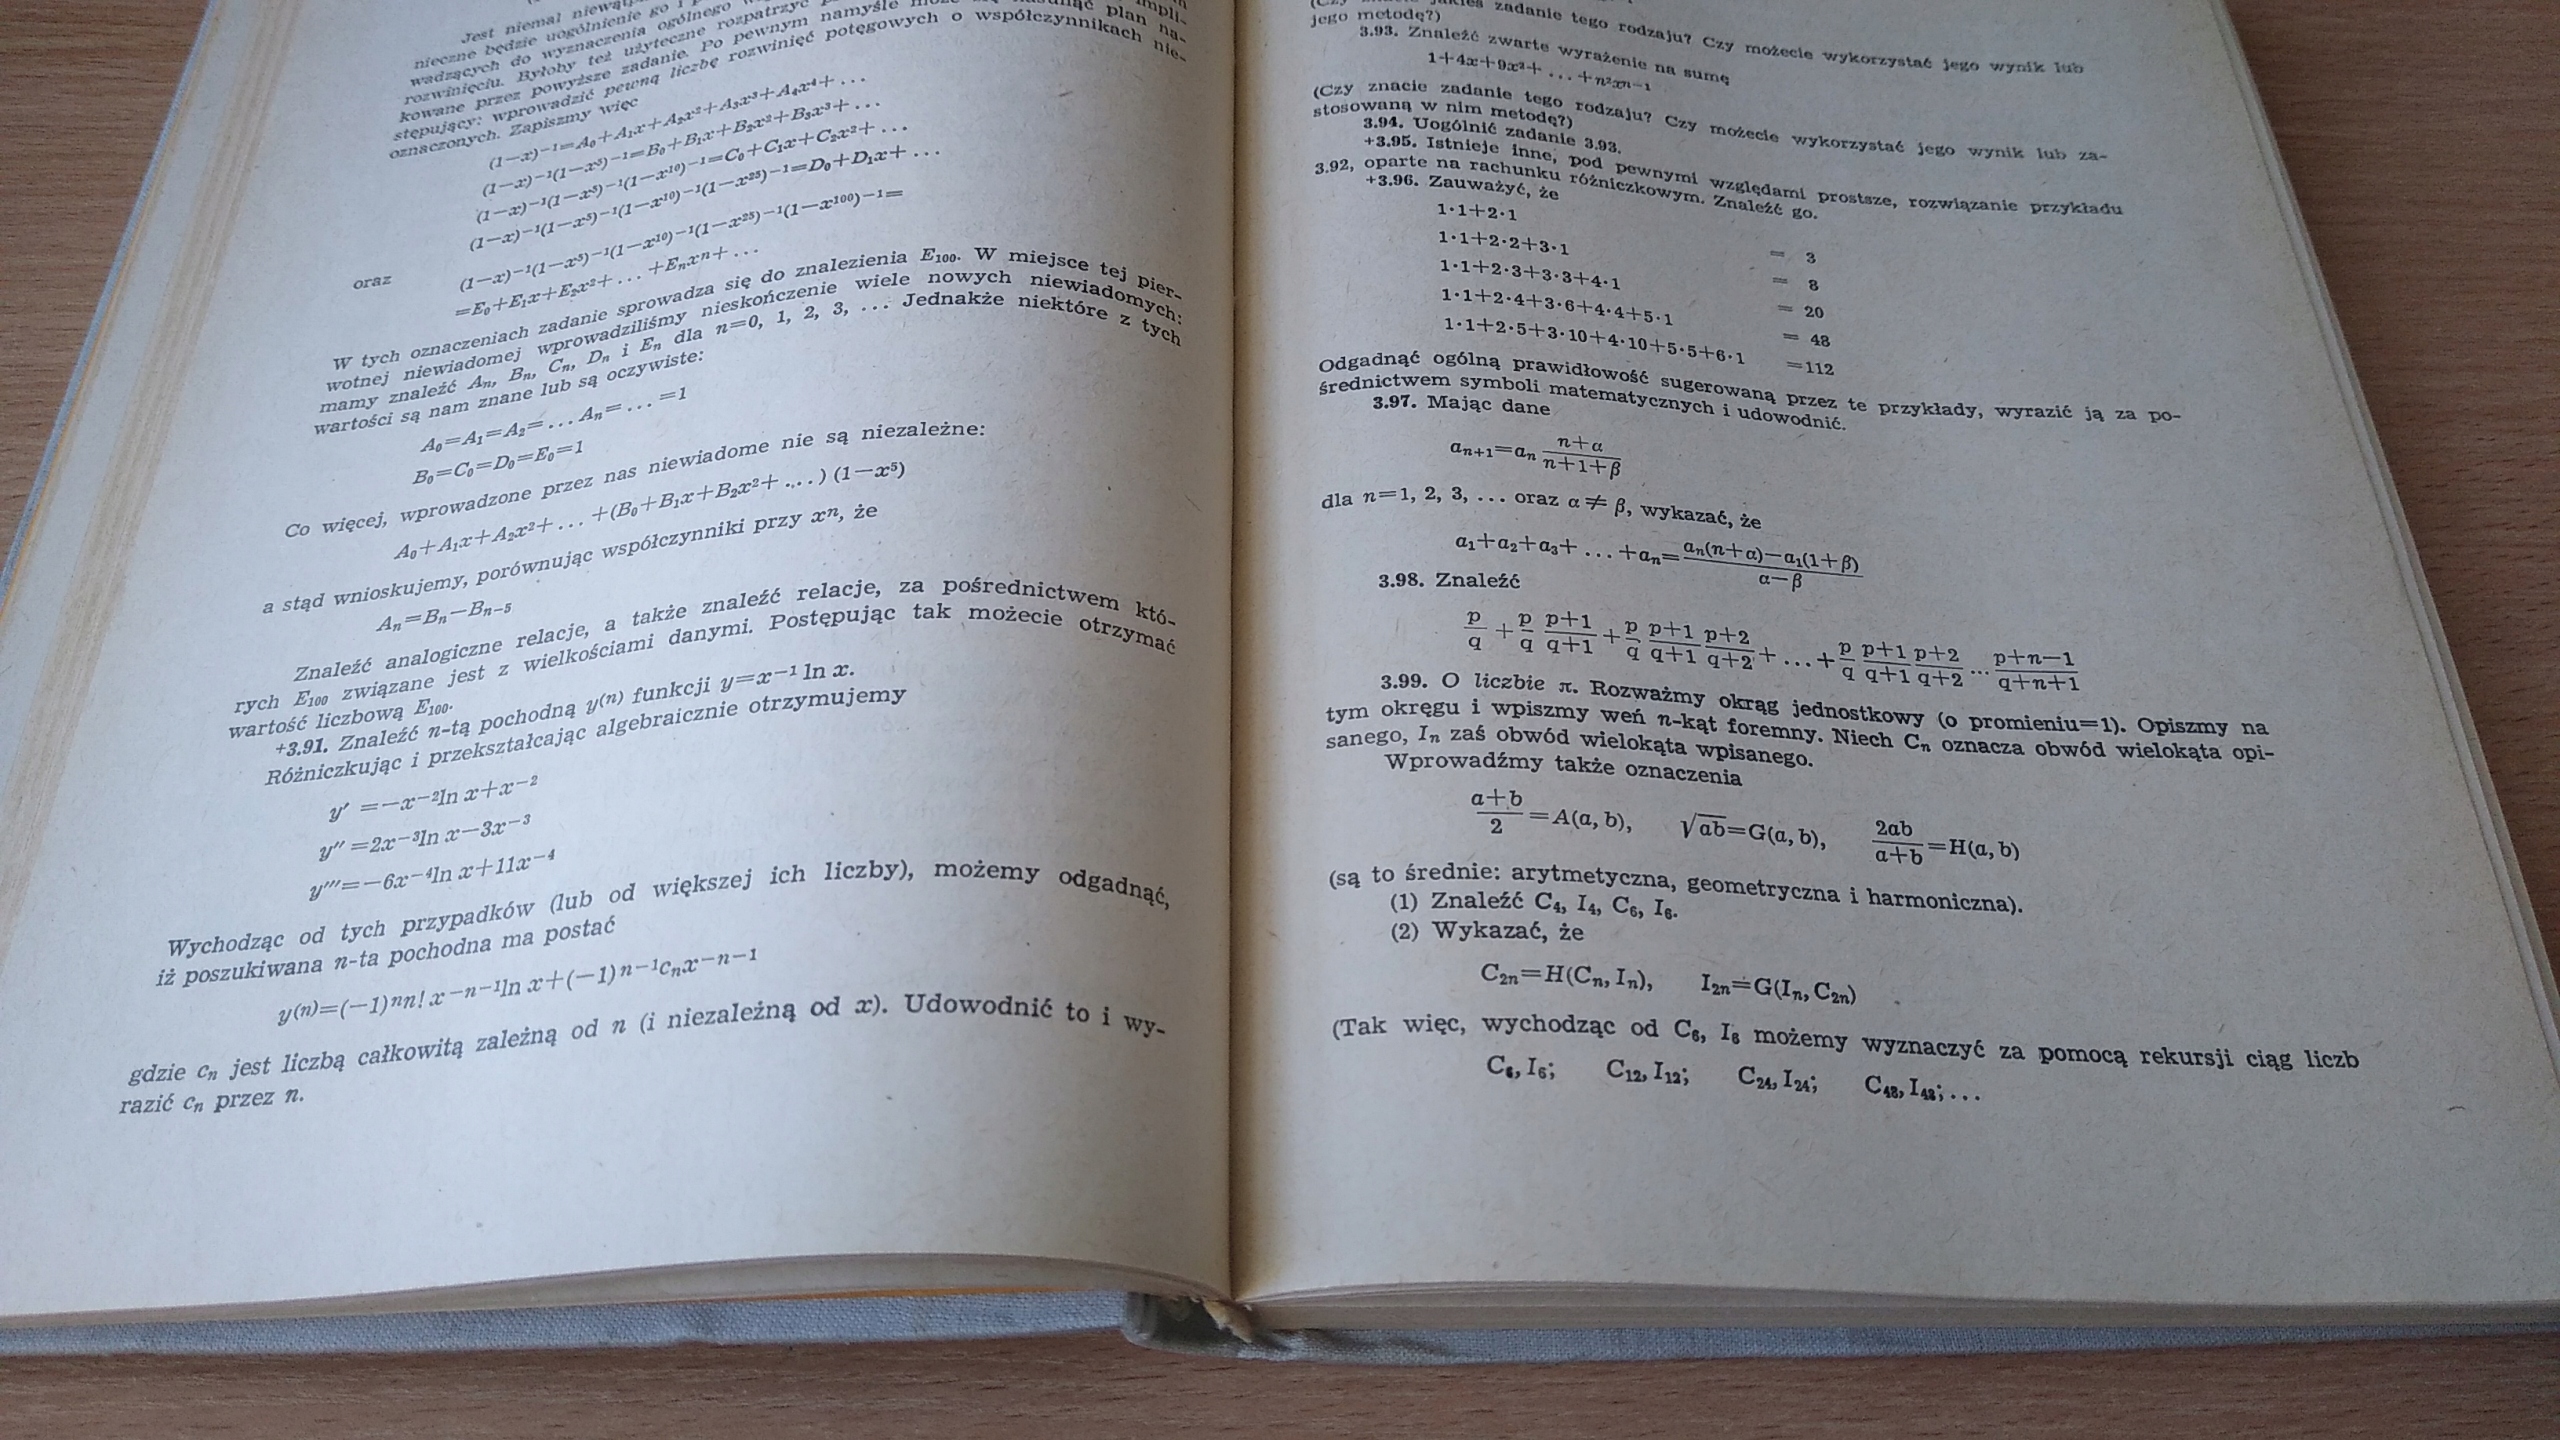 Jest niemal
nieczne będzie uogólnienie go i
wadzących do wyznaczenia ogólnego
rozwinięciu. Byłoby też użyteczne rozpatrzyć
kowane przez powyższe zadanie. Po pewnym namyśle plan na-
stępujący: wprowadzić pewną liczbę rozwinięć potęgowych o współczynnikach nie-
oznaczonych. Zapiszmy więc
(1—x)⁻¹=A₀+A₁x+A₂x²+A₃x³+A₄x⁴+ ...
(1—x)⁻¹(1—x⁵)⁻¹=B₀+B₁x+B₂x²+B₃x³+ ...
(1—x)⁻¹(1—x⁵)⁻¹(1—x¹⁰)⁻¹=C₀+C₁x+C₂x²+ ...
(1—x)⁻¹(1—x⁵)⁻¹(1—x¹⁰)⁻¹(1—x²⁵)⁻¹=D₀+D₁x+ ...
oraz
(1—x)⁻¹(1—x⁵)⁻¹(1—x¹⁰)⁻¹(1—x²⁵)⁻¹(1—x¹⁰⁰)⁻¹=
=E₀+E₁x+E₂x²+ ... +Eₙxⁿ+ ...
W tych oznaczeniach zadanie sprowadza się do znalezienia E₁₀₀. W miejsce tej pier-
wotnej niewiadomej wprowadziliśmy nieskończenie wiele nowych niewiadomych:
mamy znaleźć Aₙ, Bₙ, Cₙ, Dₙ i Eₙ dla n=0, 1, 2, 3, ... Jednakże niektóre z tych
wartości są nam znane lub są oczywiste:
A₀=A₁=A₂= ... Aₙ= ... =1
B₀=C₀=D₀=E₀=1
Co więcej, wprowadzone przez nas niewiadome nie są niezależne:
A₀+A₁x+A₂x²+ ... +(B₀+B₁x+B₂x²+ ...) (1—x⁵)
a stąd wnioskujemy, porównując współczynniki przy xⁿ, że
Aₙ=Bₙ—Bₙ₋₅
Znaleźć analogiczne relacje, a także znaleźć relacje, za pośrednictwem któ-
rych E₁₀₀ związane jest z wielkościami danymi. Postępując tak możecie otrzymać
wartość liczbową E₁₀₀.
+3.91. Znaleźć n-tą pochodną y⁽ⁿ⁾ funkcji y=x⁻¹ ln x.
Różniczkując i przekształcając algebraicznie otrzymujemy
y′ =—x⁻²ln x+x⁻²
y″ =2x⁻³ln x—3x⁻³
y‴=—6x⁻⁴ln x+11x⁻⁴
Wychodząc od tych przypadków (lub od większej ich liczby), możemy odgadnąć,
iż poszukiwana n-ta pochodna ma postać
y⁽ⁿ⁾=(—1)ⁿn! x⁻ⁿ⁻¹ln x+(—1)ⁿ⁻¹cₙx⁻ⁿ⁻¹
gdzie cₙ jest liczbą całkowitą zależną od n (i niezależną od x). Udowodnić to i wy-
razić cₙ przez n.
zadanie tego rodzaju? Czy możecie wykorzystać jego wynik lub
jego metodę?)
3.93. Znaleźć zwarte wyrażenie na sumę
1+4x+9x²+ ... +n²xⁿ⁻¹
(Czy znacie zadanie tego rodzaju? Czy możecie wykorzystać jego wynik lub za-
stosowaną w nim metodę?)
3.94. Uogólnić zadanie 3.93.
+3.95. Istnieje inne, pod pewnymi względami prostsze, rozwiązanie przykładu
3.92, oparte na rachunku różniczkowym. Znaleźć go.
+3.96. Zauważyć, że
1·1+2·1 = 3
1·1+2·2+3·1 = 8
1·1+2·3+3·3+4·1 = 20
1·1+2·4+3·6+4·4+5·1 = 48
1·1+2·5+3·10+4·10+5·5+6·1 =112
Odgadnąć ogólną prawidłowość sugerowaną przez te przykłady, wyrazić ją za po-
średnictwem symboli matematycznych i udowodnić.
3.97. Mając dane
aₙ₊₁=aₙ (n+α)/(n+1+β)
dla n=1, 2, 3, ... oraz α ≠ β, wykazać, że
a₁+a₂+a₃+ ... +aₙ= (aₙ(n+α)—a₁(1+β))/(α—β)
3.98. Znaleźć
p/q + p/q p+1/q+1 + p/q p+1/q+1 p+2/q+2 + ... + p/q p+1/q+1 p+2/q+2 ... p+n—1/q+n+1
3.99. O liczbie π. Rozważmy okrąg jednostkowy (o promieniu=1). Opiszmy na
tym okręgu i wpiszmy weń n-kąt foremny. Niech Cₙ oznacza obwód wielokąta opi-
sanego, Iₙ zaś obwód wielokąta wpisanego.
Wprowadźmy także oznaczenia
(a+b)/2 =A(a, b), √ab=G(a, b), 2ab/(a+b) =H(a, b)
(są to średnie: arytmetyczna, geometryczna i harmoniczna).
(1) Znaleźć C₄, I₄, C₆, I₆.
(2) Wykazać, że
C₂ₙ=H(Cₙ, Iₙ), I₂ₙ=G(Iₙ, C₂ₙ)
(Tak więc, wychodząc od C₆, I₆ możemy wyznaczyć za pomocą rekursji ciąg liczb
C₆, I₆; C₁₂, I₁₂; C₂₄, I₂₄; C₄₈, I₄₈; ...